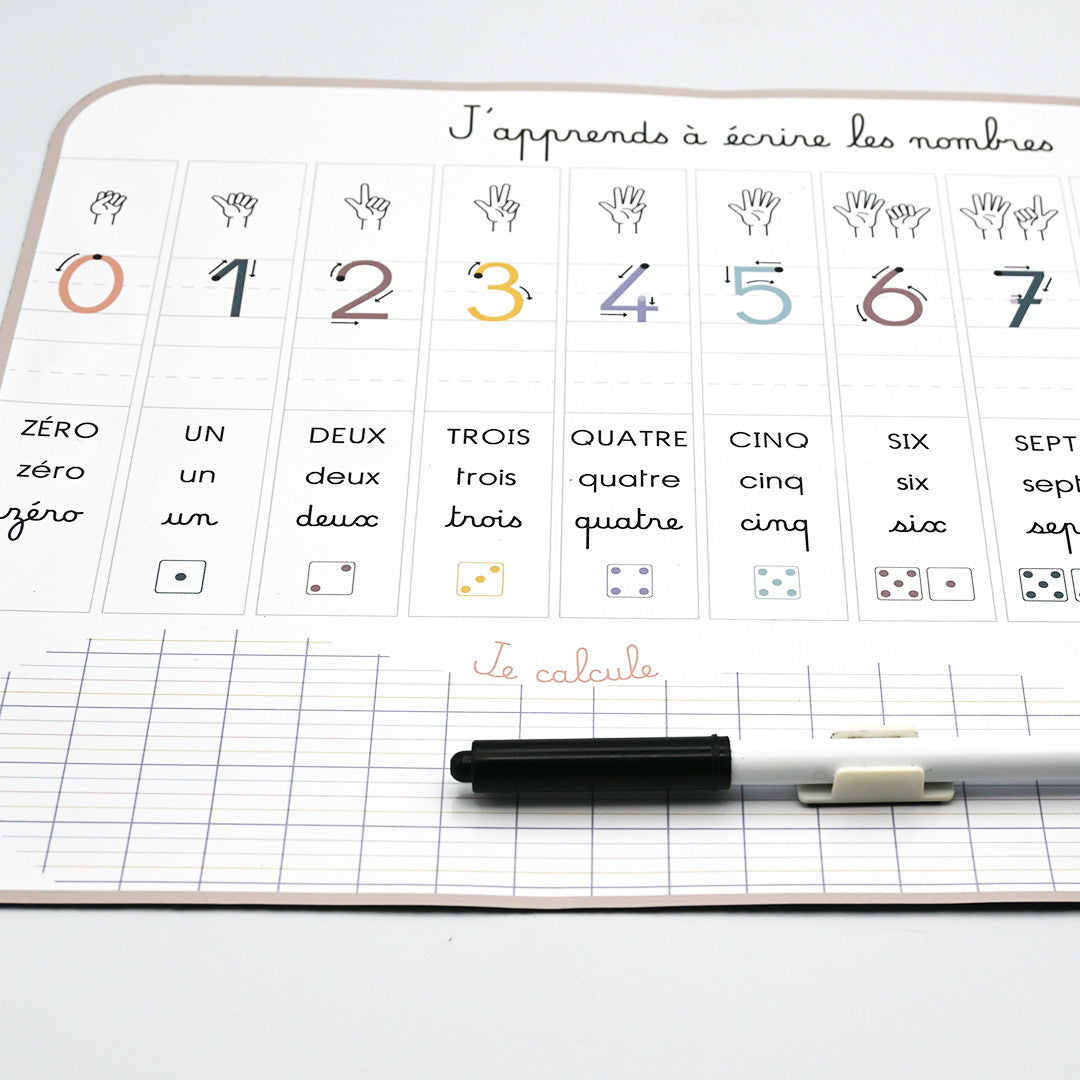 J'apprends à écrire les nombres
0 1 2 3 4 5 6 7
ZÉRO UN DEUX TROIS QUATRE CINQ SIX SEPT
zéro un deux trois quatre cinq six sept
zéro un deux trois quatre cinq six sep
Je calcule